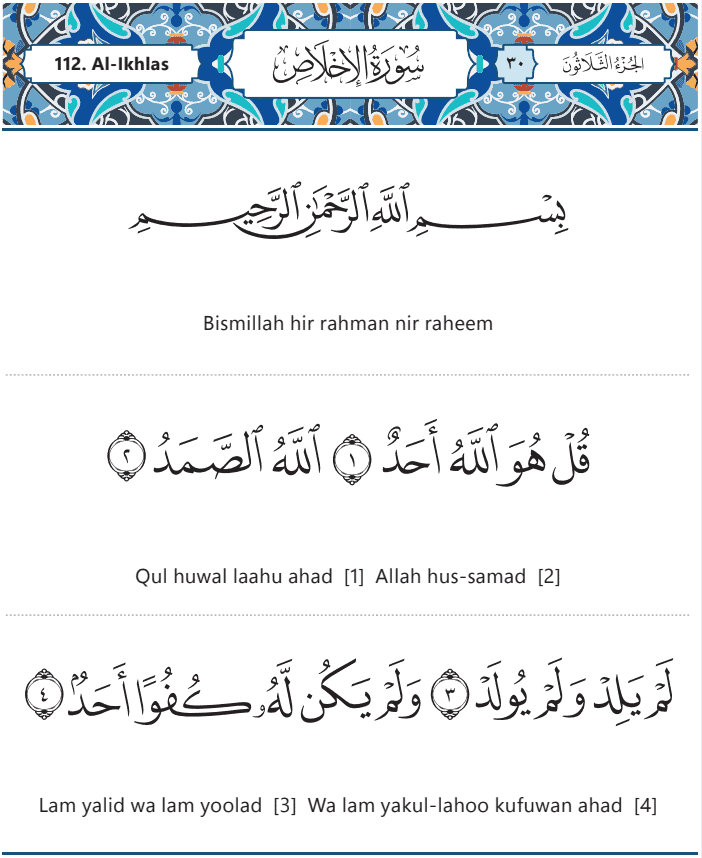 112. Al-Ikhlas سُورَةُ الإِخْلَاصِ ٣٠ الجُزْءُ الثَّلَاثُونَ
بِسْمِ ٱللَّهِ ٱلرَّحْمَٰنِ ٱلرَّحِيمِ
Bismillah hir rahman nir raheem
قُلْ هُوَ ٱللَّهُ أَحَدٌ ١ ٱللَّهُ ٱلصَّمَدُ ٢
Qul huwal laahu ahad [1] Allah hus-samad [2]
لَمْ يَلِدْ وَلَمْ يُولَدْ ٣ وَلَمْ يَكُن لَّهُۥ كُفُوًا أَحَدٌۢ ٤
Lam yalid wa lam yoolad [3] Wa lam yakul-lahoo kufuwan ahad [4]